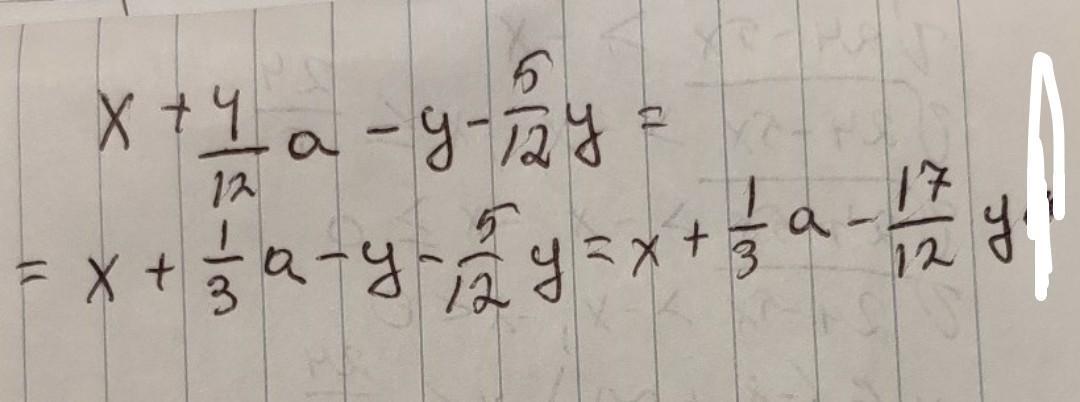 x + 4/12 a - y - 5/12 y =
= x + 1/3 a - y - 5/12 y = x + 1/3 a - 17/12 y